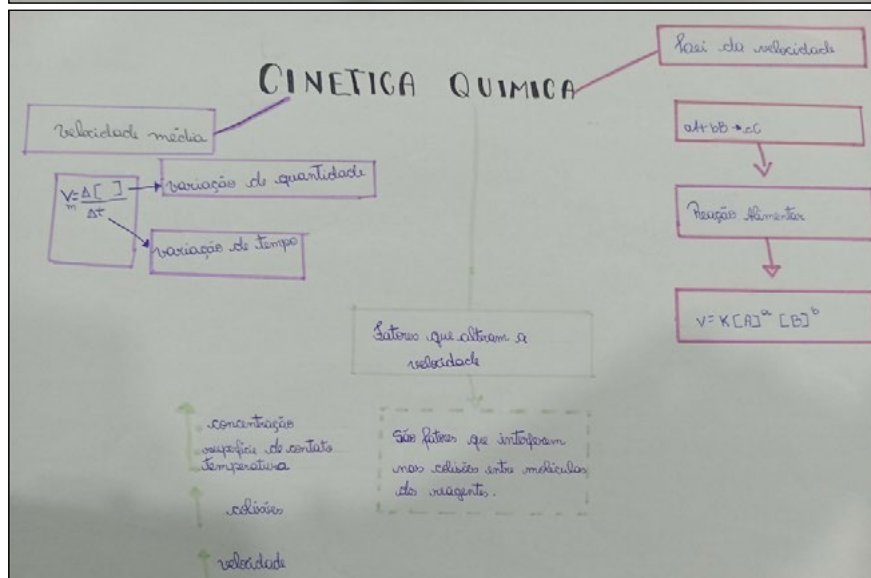 CINETICA QUIMICA
Velocidade média
Vm = Δ[ ]
Δt
variação de quantidade
variação de tempo
Lei da velocidade
aA+bB→cC
Reação
V=K[A]ᵃ [B]ᵇ
Fatores que alteram a
velocidade
São fatores que interferem
nas colisões entre moléculas
do reagentes.
concentração
superfície de contato
temperatura
colisões
velocidade